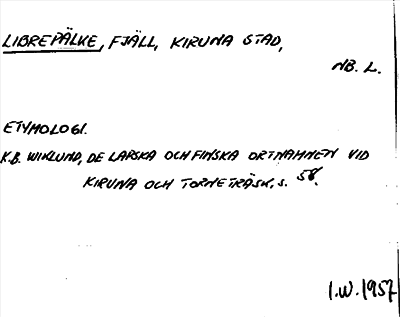 LIBREPÄLKE, FJÄLL, KIRUNA STAD,
NB. L.
ETYMOLOGI.
K.B. WIKLUND, DE LAPSKA OCH FINSKA ORTNAMNEN VID
KIRUNA OCH TORNETRÄSK, s. 58.
I.W. 1957